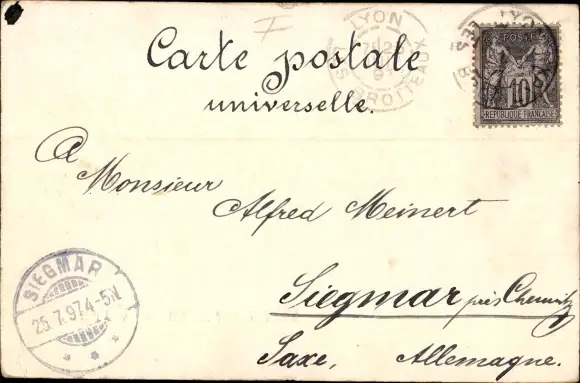 Carte postale
universelle.
LYON
LES BROTTEAUX
POSTES
10
REPUBLIQUE FRANÇAISE
A
Monsieur
Alfred Meinert
Siegmar près Chemnitz
Saxe, Allemagne.
SIEGMAR
25.7.97.4-5N